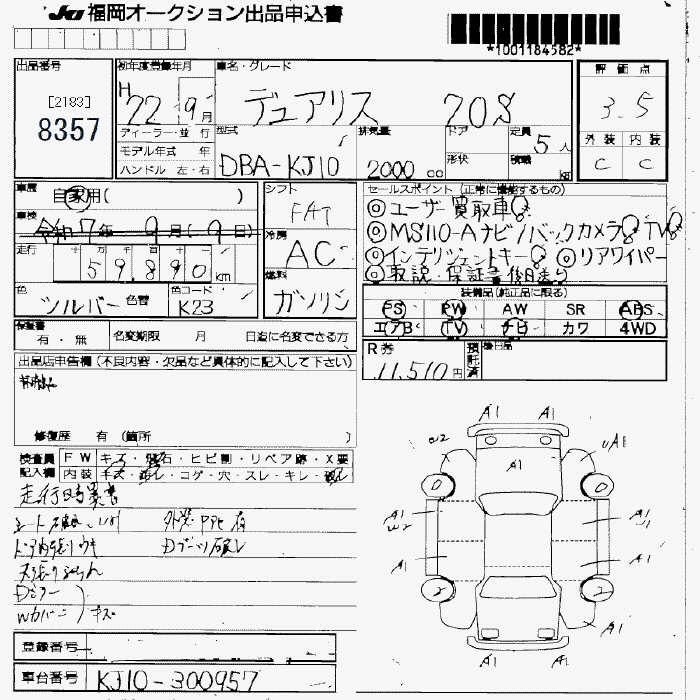 JU 福岡オークション出品申込書
*1001184582*
出品番号
[2183]
8357
初年度登録年月
H 22 9月
ディーラー・並 行
モデル年式 年
ハンドル 左・右
車名・グレード
デュアリス 20S
型式
DBA-KJ10
排気量
2000 cc
ドア
形状
定員
5人
積載
kg
評価点
3.5
外装 内装
C C
車歴
自家用( )
車検
令和7年 9月(9日)
走行
十万千百十一
59,890km
色
シルバー
色替
色コード
K23
シフト
FAT
冷房
AC
燃料
ガソリン
セールスポイント (正常に機能するもの)
◎ユーザー買取車
◎MS110-Aナビ/バックカメラ TV
◎インテリジェントキー ◎リアワイパー
◎取説 保証書後日送り
装備品(純正品に限る)
PS PW AW SR ABS
エアB TV ナビ カワ 4WD
保証書
有・無
名変期限 月 日迄に名変できる方
R券
11,510円
預託済
後日品
出品店申告欄 (不良内容・欠品など具体的に記入して下さい)
修復歴 有 (箇所 )
検査員記入欄
FW キズ・飛石・ヒビ割・リペア跡・X要
内装 キズ・汚レ・コゲ・穴・スレ・キレ・破レ
外装PPE有
Dブーツ破レ
Dミラー
Wカバー キズ
登録番号
車台番号
KJ10-300957
A1 A1
W2 A1 UA1
0 0
A1 W2
A1 A1
2 2
A1 A1
A1 A1